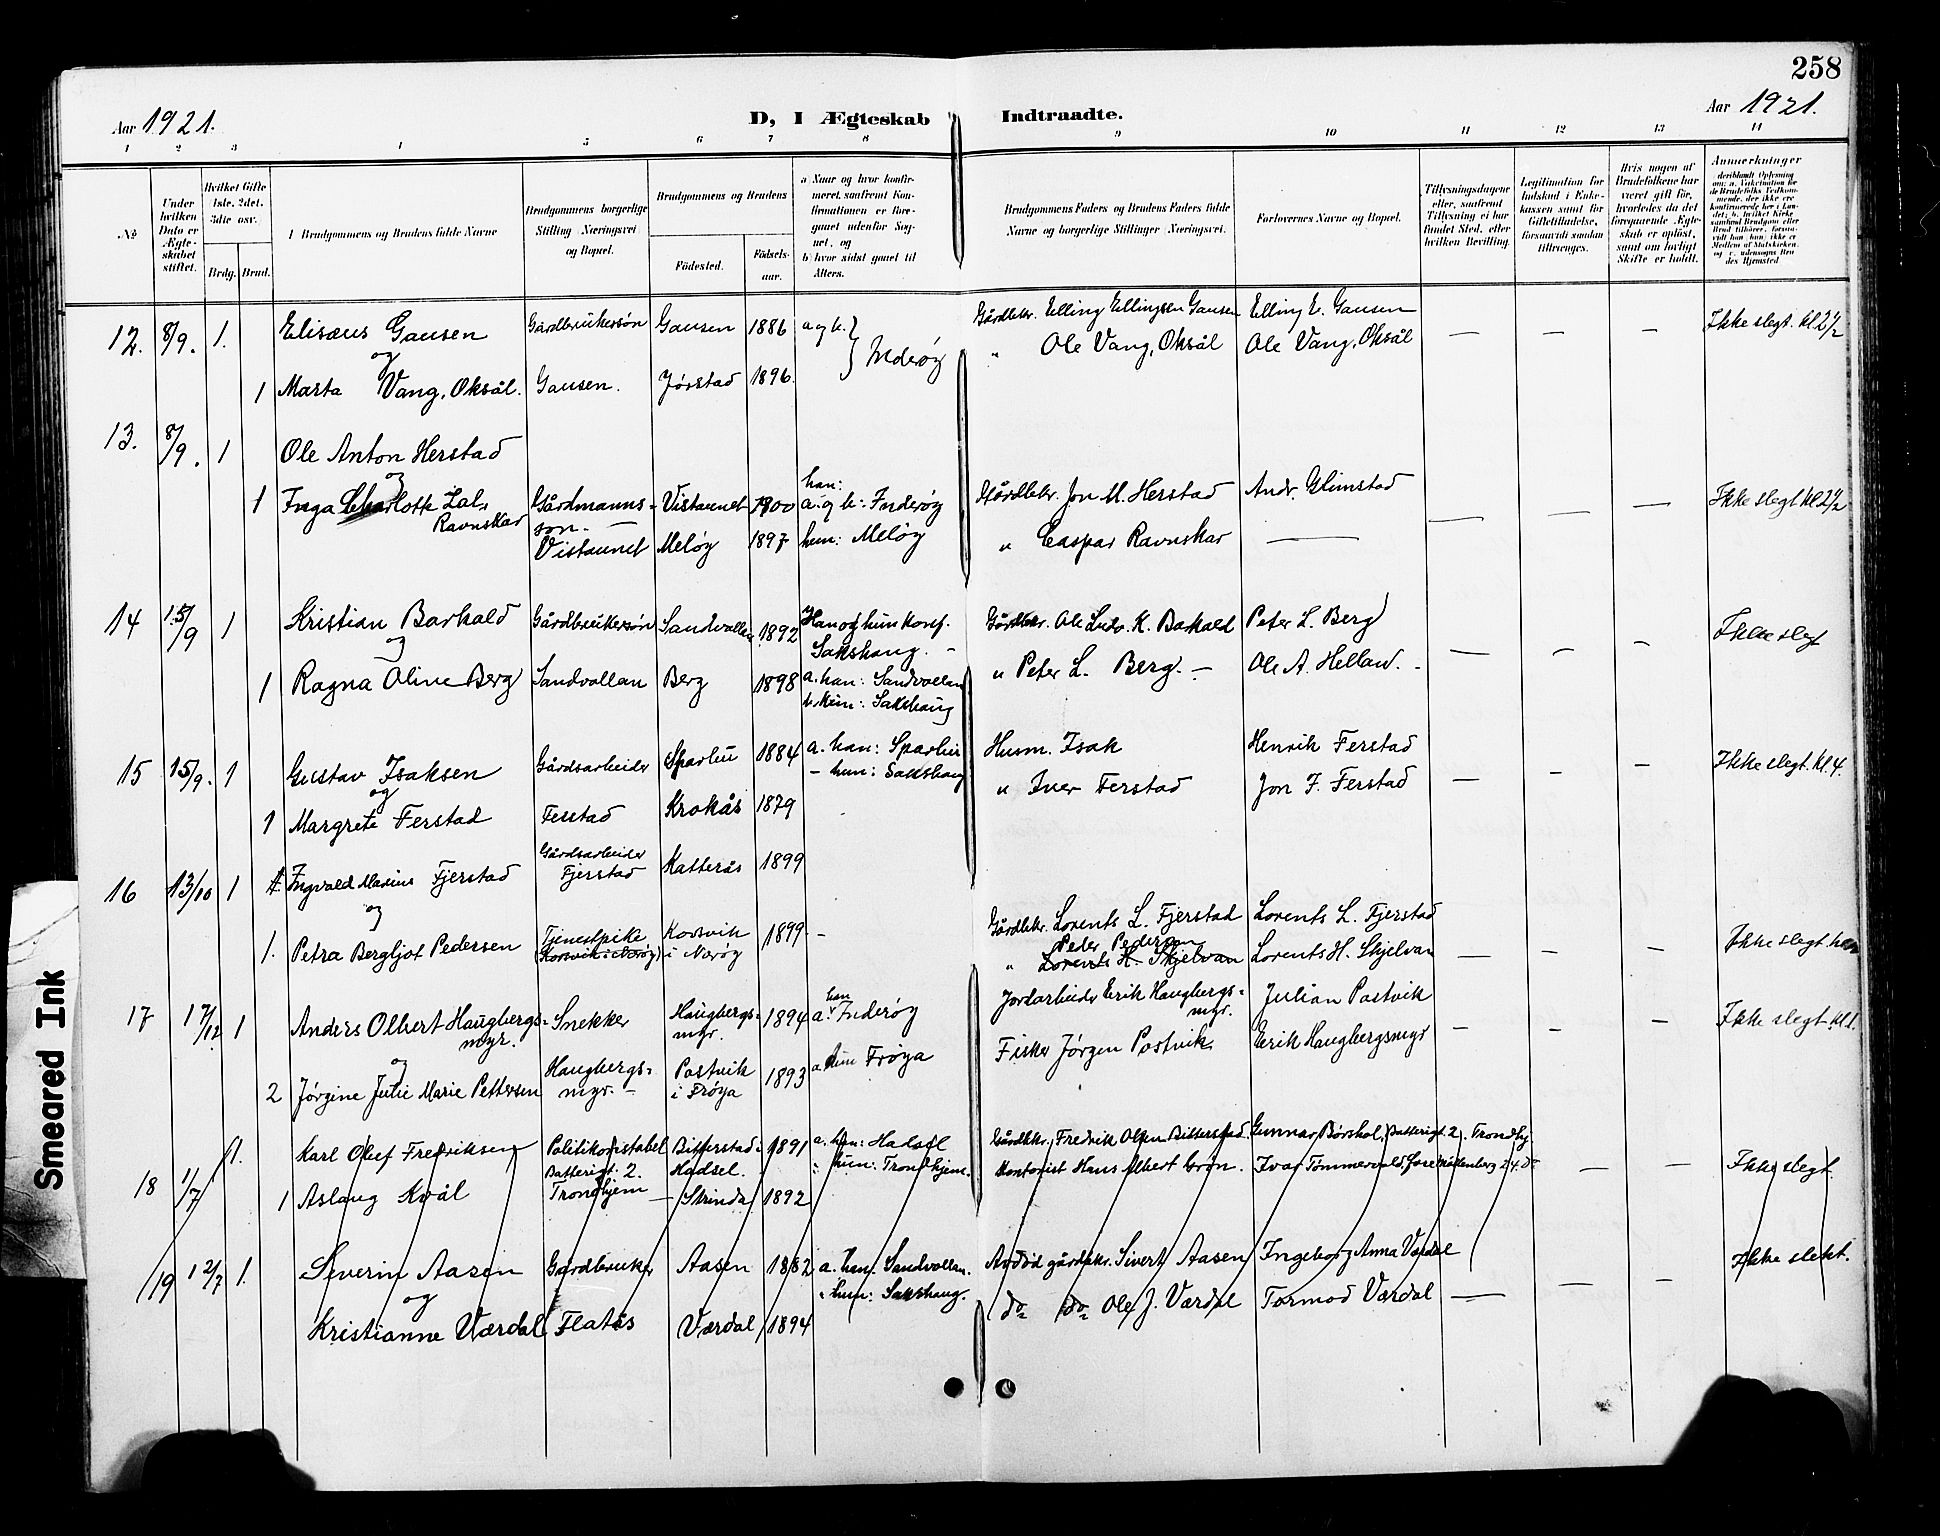 258
Aar 1921.
D, I Ægteskab Indtraadte.
Aar 1921.
1 2 3 4 5 6 7 8 9 10 11 12 13 14
No
Under hvilken Dato er Ægteskabet stiftet.
Hvilket Gifte 1ste. 2det. 3die osv.
Brdg. Brud.
Brudgommens og Brudens fulde Navne
Brudgommens borgerlige Stilling (Næringsvei og Bopæl.
Brudgommens og Brudens
Fødested.
Fødsels-aar.
a Naar og hvor konfirmeret, saafremt Konfirmationen er foregaaet udenfor Sognet, og
b hvor sidst gaaet til Alters.
Brudgommens Faders og Brudens Faders fulde Navne og borgerlige Stillinger (Næringsvei.
Forlovernes Navne og Bopæl.
Tillysningsdagene eller, saafremt Tillysning ei har fundet Sted, efter hvilken Bevilling.
Legitimation for Indskud i Enkekassen samt for Giftetilladelse, forsaavidt saadan tiltrænges.
Hvis nogen af Brudefolkene har været gift før, hvorledes da det foregaaende Ægteskab er opløst, samt om lovligt Skifte er holdt.
Anmerkninger
12. 8/9. 1. Elisæus Gausen Gårdbrukersøn Gausen 1886 a og b. } Inderøy Gårdbkr. Elling Ellingsen Gausen Elling E. Gausen — — — Ikke slegt. kl 2 1/2
og
1 Marta Vang, Oksål. Gausen. Jørstad 1896. " Ole Vang, Oksål Ole Vang, Oksål
13. 8/9. 1 Ole Anton Herstad
og
1 Inga Charlotte Zal. Ravnskar Gårdmanns-søn. — Vistaunet 1900 han: a. og b: Inderøy Gårdbkr. Jon M. Herstad Andr. Glimstad — — — Ikke slegt kl 2 1/2
Vistaunet Meløy 1897 hun: Meløy " Caspar Ravnskar —
14 15/9 1 Kristian Barkald Gårdbrukersøn Sandvollan 1892 Han og hun konf. Sakshaug. — Gårdbkr. Ole Ludv. K. Bakald Peter L. Berg — — — Ikke slegt
og
1 Ragna Oline Berg Sandvollan Berg 1898 a. han: Sandvollan b. hun: Sakshaug " Peter L. Berg. — Ole A. Hellan. -
15 15/9. 1 Gustav Isaksen Gårdsarbeider Sparbu 1884 a. han: Sparbu Husm. Isak Henrik Ferstad — — — Ikke slegt. kl. 4.
og
— hun: Sakshaug
1 Margrete Ferstad Ferstad Krokås 1879 " Iver Ferstad Jon F. Ferstad
16 13/10 1 Ingvald Marius Fjerstad Gårdsarbeider Fjerstad Katterås 1899 Gårdbkr. Lorents L. Fjerstad Lorents L. Fjerstad
og
1. Petra Bergljot Pedersen Tjenestpike (Korsvik i Nærøy) Korsvik i Nærøy 1899. — Peder Pedersen
" Lorents H. Skjelvan Lorents H. Skjelvan — — — Ikke slegt.
17 17/12 1 Anders Olbert Haugbergs-myr. Snekker Haugbergs-myr. 1894 a. han Inderøy Jordarbeider Erik Haugbergs-myr. Julian Postvik — — — Ikke slegt kl.
og
2 Jørgine Julie Marie Pettersen Haugbergs-myr. — Postvik i Frøya 1893 a hun Frøya Fisker Jørgen Postvik Erik Haugbergsmyr
18 1/7 1. Karl Olief Fredriksen Politikonstabel Batterigt. 2. Trondhjem Bitterstad i Hadsel. 1891 a. han: Hadsel Gårdbkr. Fredrik Olsen Bitterstad Gunnar Børshol, Batterigt 2. Trondhj — — Ikke slegt.
: hun: Trondhjem.
1 Aslaug Kvål — Strinda 1892 Kontorist Hans Albert Grøn. Ivar Tømmervold, 24. do
19 12/7 1. Severin Aasen Gårdbruker Aasen 1882 a. han: Sandvollan. Avdød gårdbkr. Sivert Aasen Ingeborg Anna Værdal — — — Ikke slekt.
og
" hun: Sakshaug.
Kristianne Værdal Flatås Værdal 1894 do do Ole J. Værdal Tormod Værdal
Smeared Ink